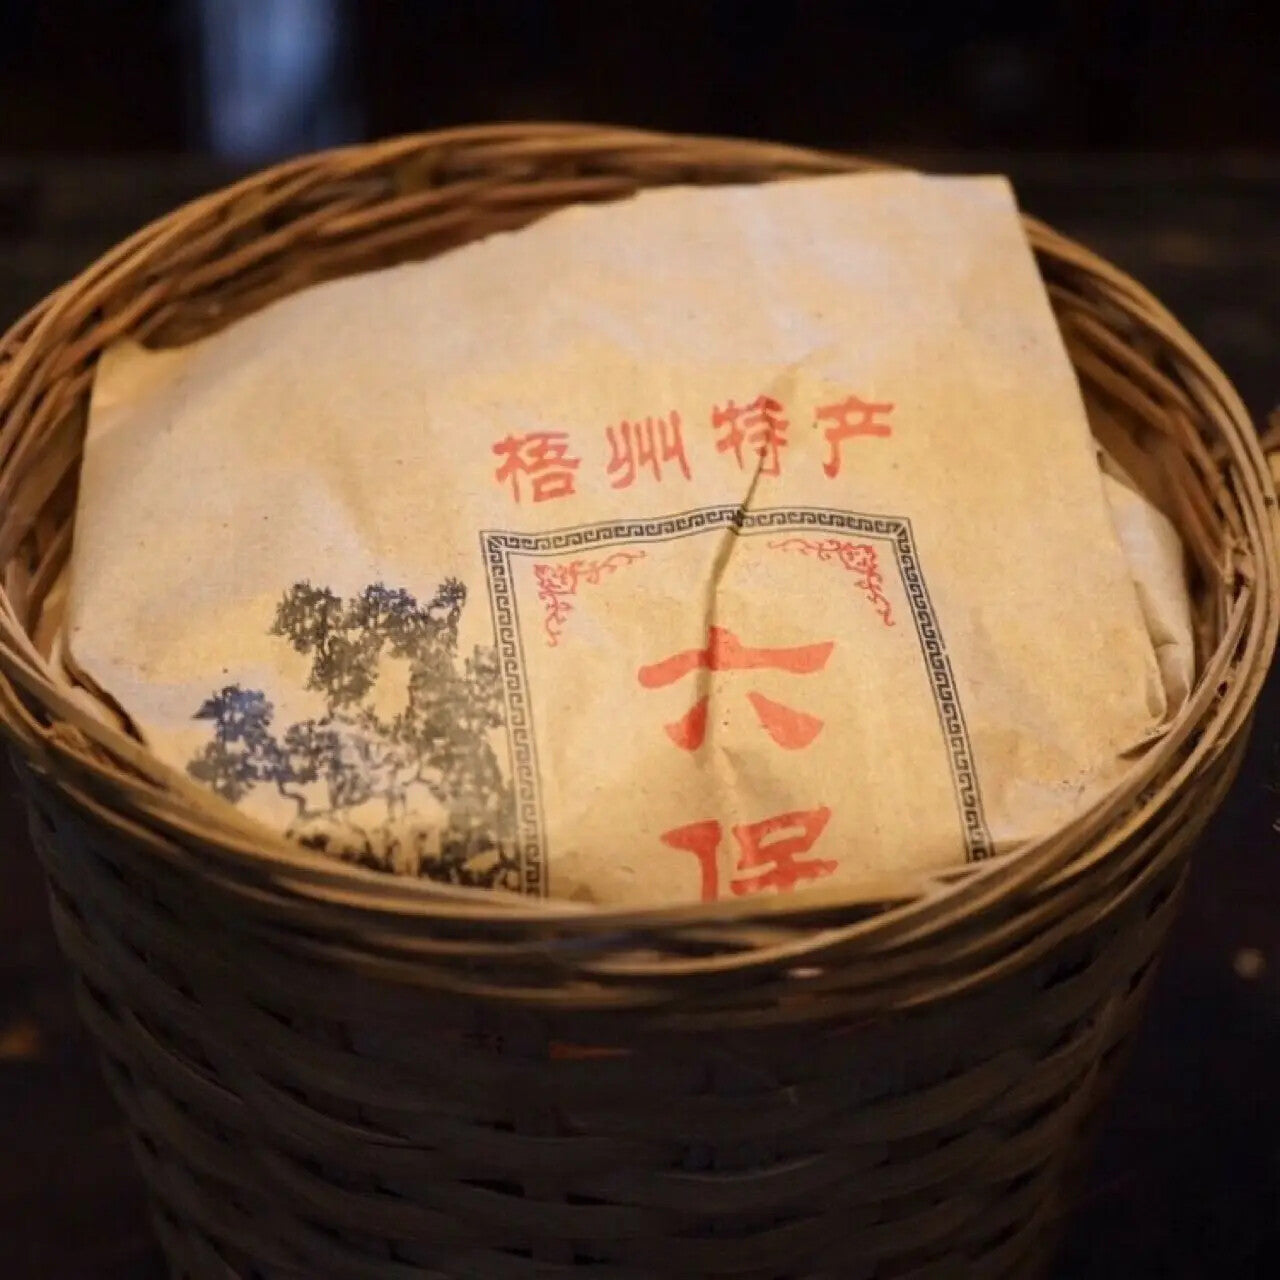 梧州特产
六保